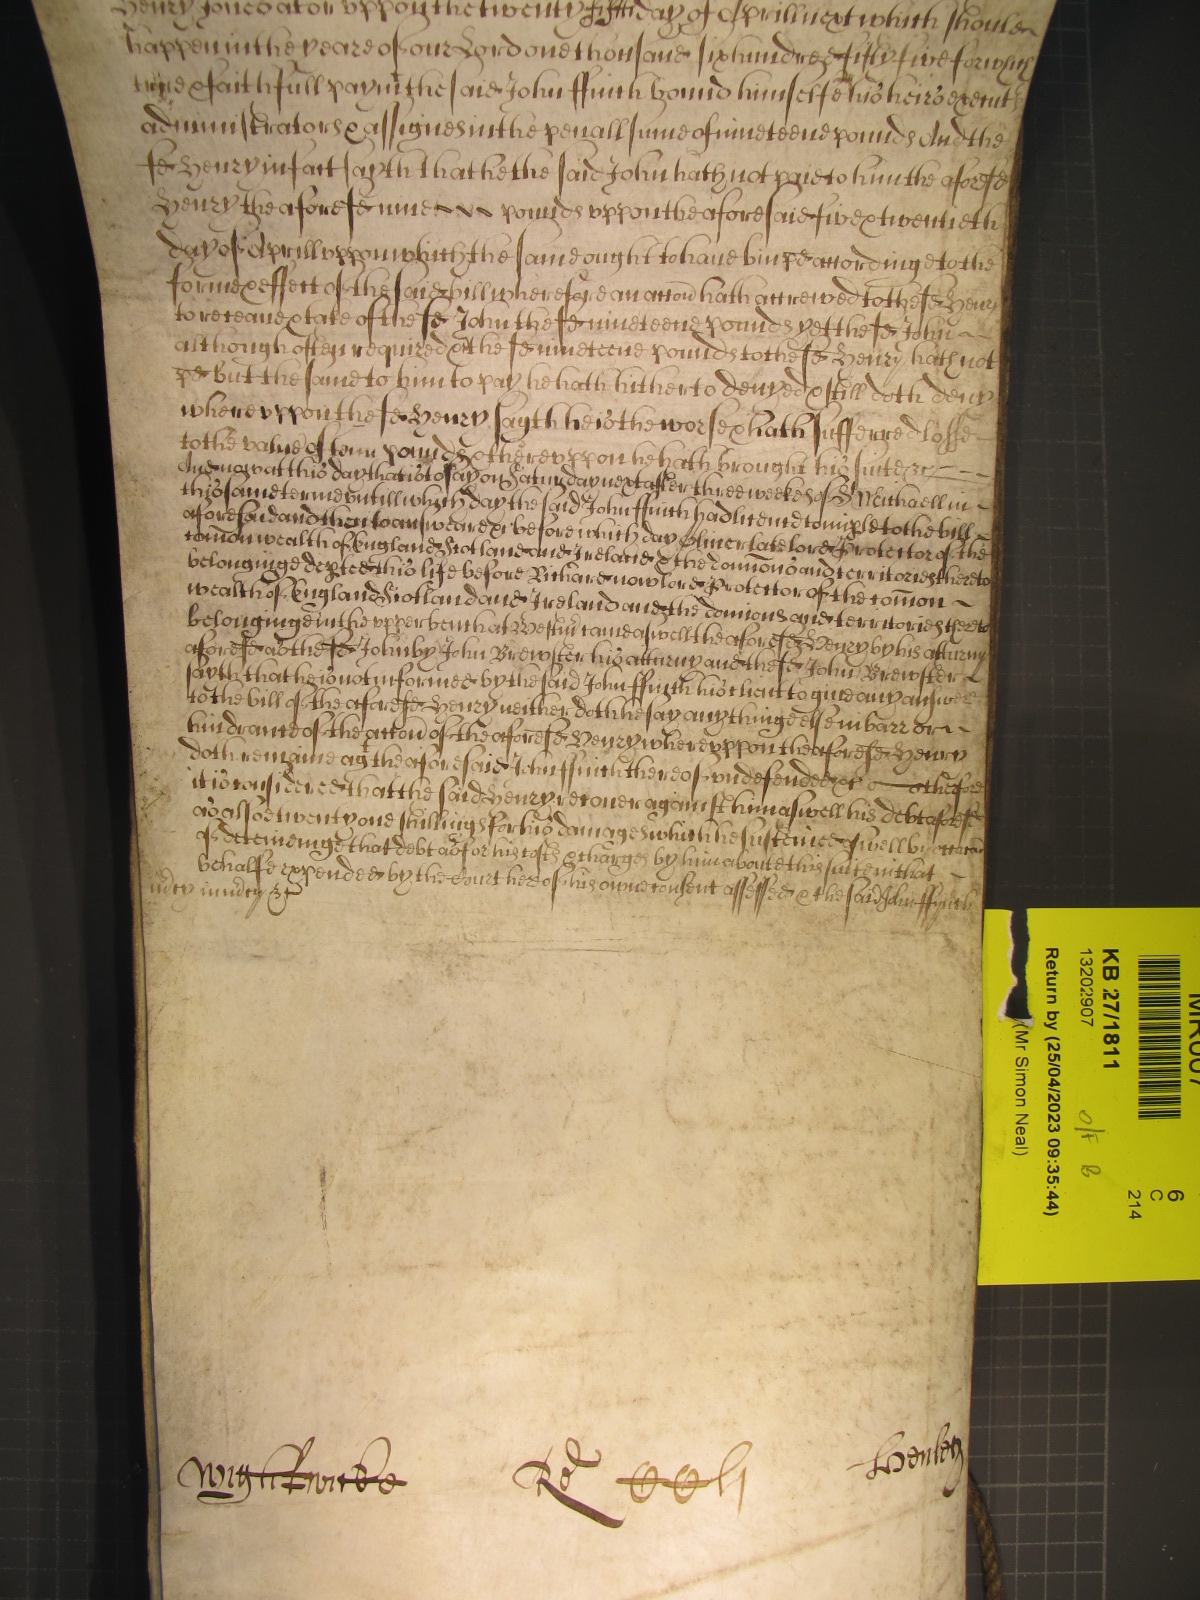 Henry Jones ator uppon the twenty fifth day of Aprill next which should
happen in the yeare of our Lord one thousand six hundred fifty five for which
true & faithfull paymt the said John Ffinch bound himselfe his heires execut
administrators & assignes in the penall sume of nineteene pounds And the
sd Henry in fact sayth that he the said John hath not paid to him the aforesd
Henry the aforesd nine pounds uppon the aforesaid five & twentieth
day of Aprill uppon which the same ought to have bin pd accordinge to the
forme & effect of the said bill wherefore an accon hath accrewed to the sd Henry
to receave & take of the sd John the sd nineteene pounds yet the sd John
although often required & the sd nineteene pounds to the sd Henry hath not
pd but the same to him to pay he hath hitherto denyed & still doth deny
whereuppon the sd Henry sayth he is the worse & hath sufferred losse
to the value of tenn pounds & thereuppon he hath brought his suite &c
And now at this day that is to say on Saturday next after three weekes of St Michaell in
this same terme untill which day the said John Ffinch had licence to imple to the bill
aforesaid and then to answeare &c before which day Oliver late lord Protector of the
comon wealth of England Scotland and Ireland & the domions and territories thereto
belonginge depted this life before Richard now lord Protector of the comon
wealth of England Scotland and Ireland and the domions and territories thereto
belonginge in the upper bench at Westmr came aswell the aforesd Henry by his atturny
aforesd as the sd John by John Brewster his atturny and the sd John Brewster
sayth that he is not informed by the said John Ffinch his client to give any answer
to the bill of the aforesd Henry neither doth he say any thinge else in barr or
hindrance of the accon of the aforesd Henry whereuppon the aforesd Henry
doth remaine agt the aforesaid John Ffinch thereof undefended &c therefore
it is considered that the said Henry recover against him aswell his debt aforesd
as alsoe twenty one shillings for his damages which he susteined aswell by occacon
of deteininge that debt as for his costs & charges by him aboute his suite in that
behalfe expended by the Court here of his owne consent assessed & the said John Ffynch
in mcy &c
Wightwicke Rd ooli Henley
MR007
6
C
214
KB 27/1811
13202907
o/f B
Return by (25/04/2023 09:35:44)
(Mr Simon Neal)